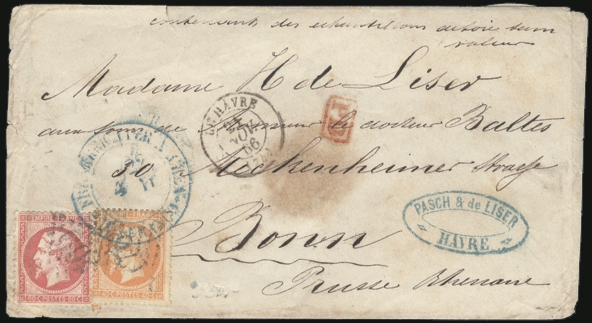 contenant des échantillons de soie sans
valeur
Madame H de Liser
aux soins de Monsieur le docteur Baltes
30 Meckenheimer Strasse
Bonn
Prusse Rhenane
LE HAVRE
24
NOV.
66
PASCH & de LISER
HAVRE
EMPIRE FRANCAIS
80 C POSTES 80 C
40 C POSTES 40 C